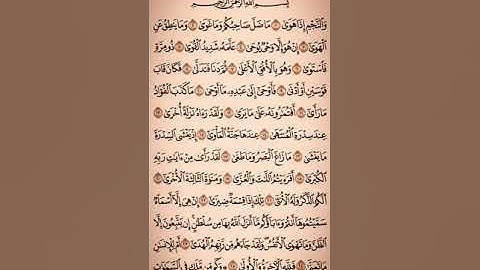 بِسْمِ اللَّهِ الرَّحْمَٰنِ الرَّحِيمِ
وَالنَّجْمِ إِذَا هَوَىٰ ۝١ مَا ضَلَّ صَاحِبُكُمْ وَمَا غَوَىٰ ۝٢ وَمَا يَنطِقُ عَنِ
الْهَوَىٰ ۝٣ إِنْ هُوَ إِلَّا وَحْيٌ يُوحَىٰ ۝٤ عَلَّمَهُ شَدِيدُ الْقُوَىٰ ۝٥ ذُو مِرَّةٍ
فَاسْتَوَىٰ ۝٦ وَهُوَ بِالْأُفُقِ الْأَعْلَىٰ ۝٧ ثُمَّ دَنَا فَتَدَلَّىٰ ۝٨ فَكَانَ قَابَ
قَوْسَيْنِ أَوْ أَدْنَىٰ ۝٩ فَأَوْحَىٰ إِلَىٰ عَبْدِهِ مَا أَوْحَىٰ ۝١٠ مَا كَذَبَ الْفُؤَادُ
مَا رَأَىٰ ۝١١ أَفَتُمَارُونَهُ عَلَىٰ مَا يَرَىٰ ۝١٢ وَلَقَدْ رَآهُ نَزْلَةً أُخْرَىٰ ۝١٣
عِندَ سِدْرَةِ الْمُنتَهَىٰ ۝١٤ عِندَهَا جَنَّةُ الْمَأْوَىٰ ۝١٥ إِذْ يَغْشَى السِّدْرَةَ
مَا يَغْشَىٰ ۝١٦ مَا زَاغَ الْبَصَرُ وَمَا طَغَىٰ ۝١٧ لَقَدْ رَأَىٰ مِنْ آيَاتِ رَبِّهِ
الْكُبْرَىٰ ۝١٨ أَفَرَأَيْتُمُ اللَّاتَ وَالْعُزَّىٰ ۝١٩ وَمَنَاةَ الثَّالِثَةَ الْأُخْرَىٰ ۝٢٠
أَلَكُمُ الذَّكَرُ وَلَهُ الْأُنثَىٰ ۝٢١ تِلْكَ إِذًا قِسْمَةٌ ضِيزَىٰ ۝٢٢ إِنْ هِيَ إِلَّا أَسْمَاءٌ
سَمَّيْتُمُوهَا أَنتُمْ وَآبَاؤُكُم مَّا أَنزَلَ اللَّهُ بِهَا مِن سُلْطَانٍ ۚ إِن يَتَّبِعُونَ إِلَّا
الظَّنَّ وَمَا تَهْوَى الْأَنفُسُ ۖ وَلَقَدْ جَاءَهُم مِّن رَّبِّهِمُ الْهُدَىٰ ۝٢٣ أَمْ لِلْإِنسَانِ
مَا تَمَنَّىٰ ۝٢٤ فَلِلَّهِ الْآخِرَةُ وَالْأُولَىٰ ۝٢٥ وَكَم مِّن مَّلَكٍ فِي السَّمَاوَاتِ